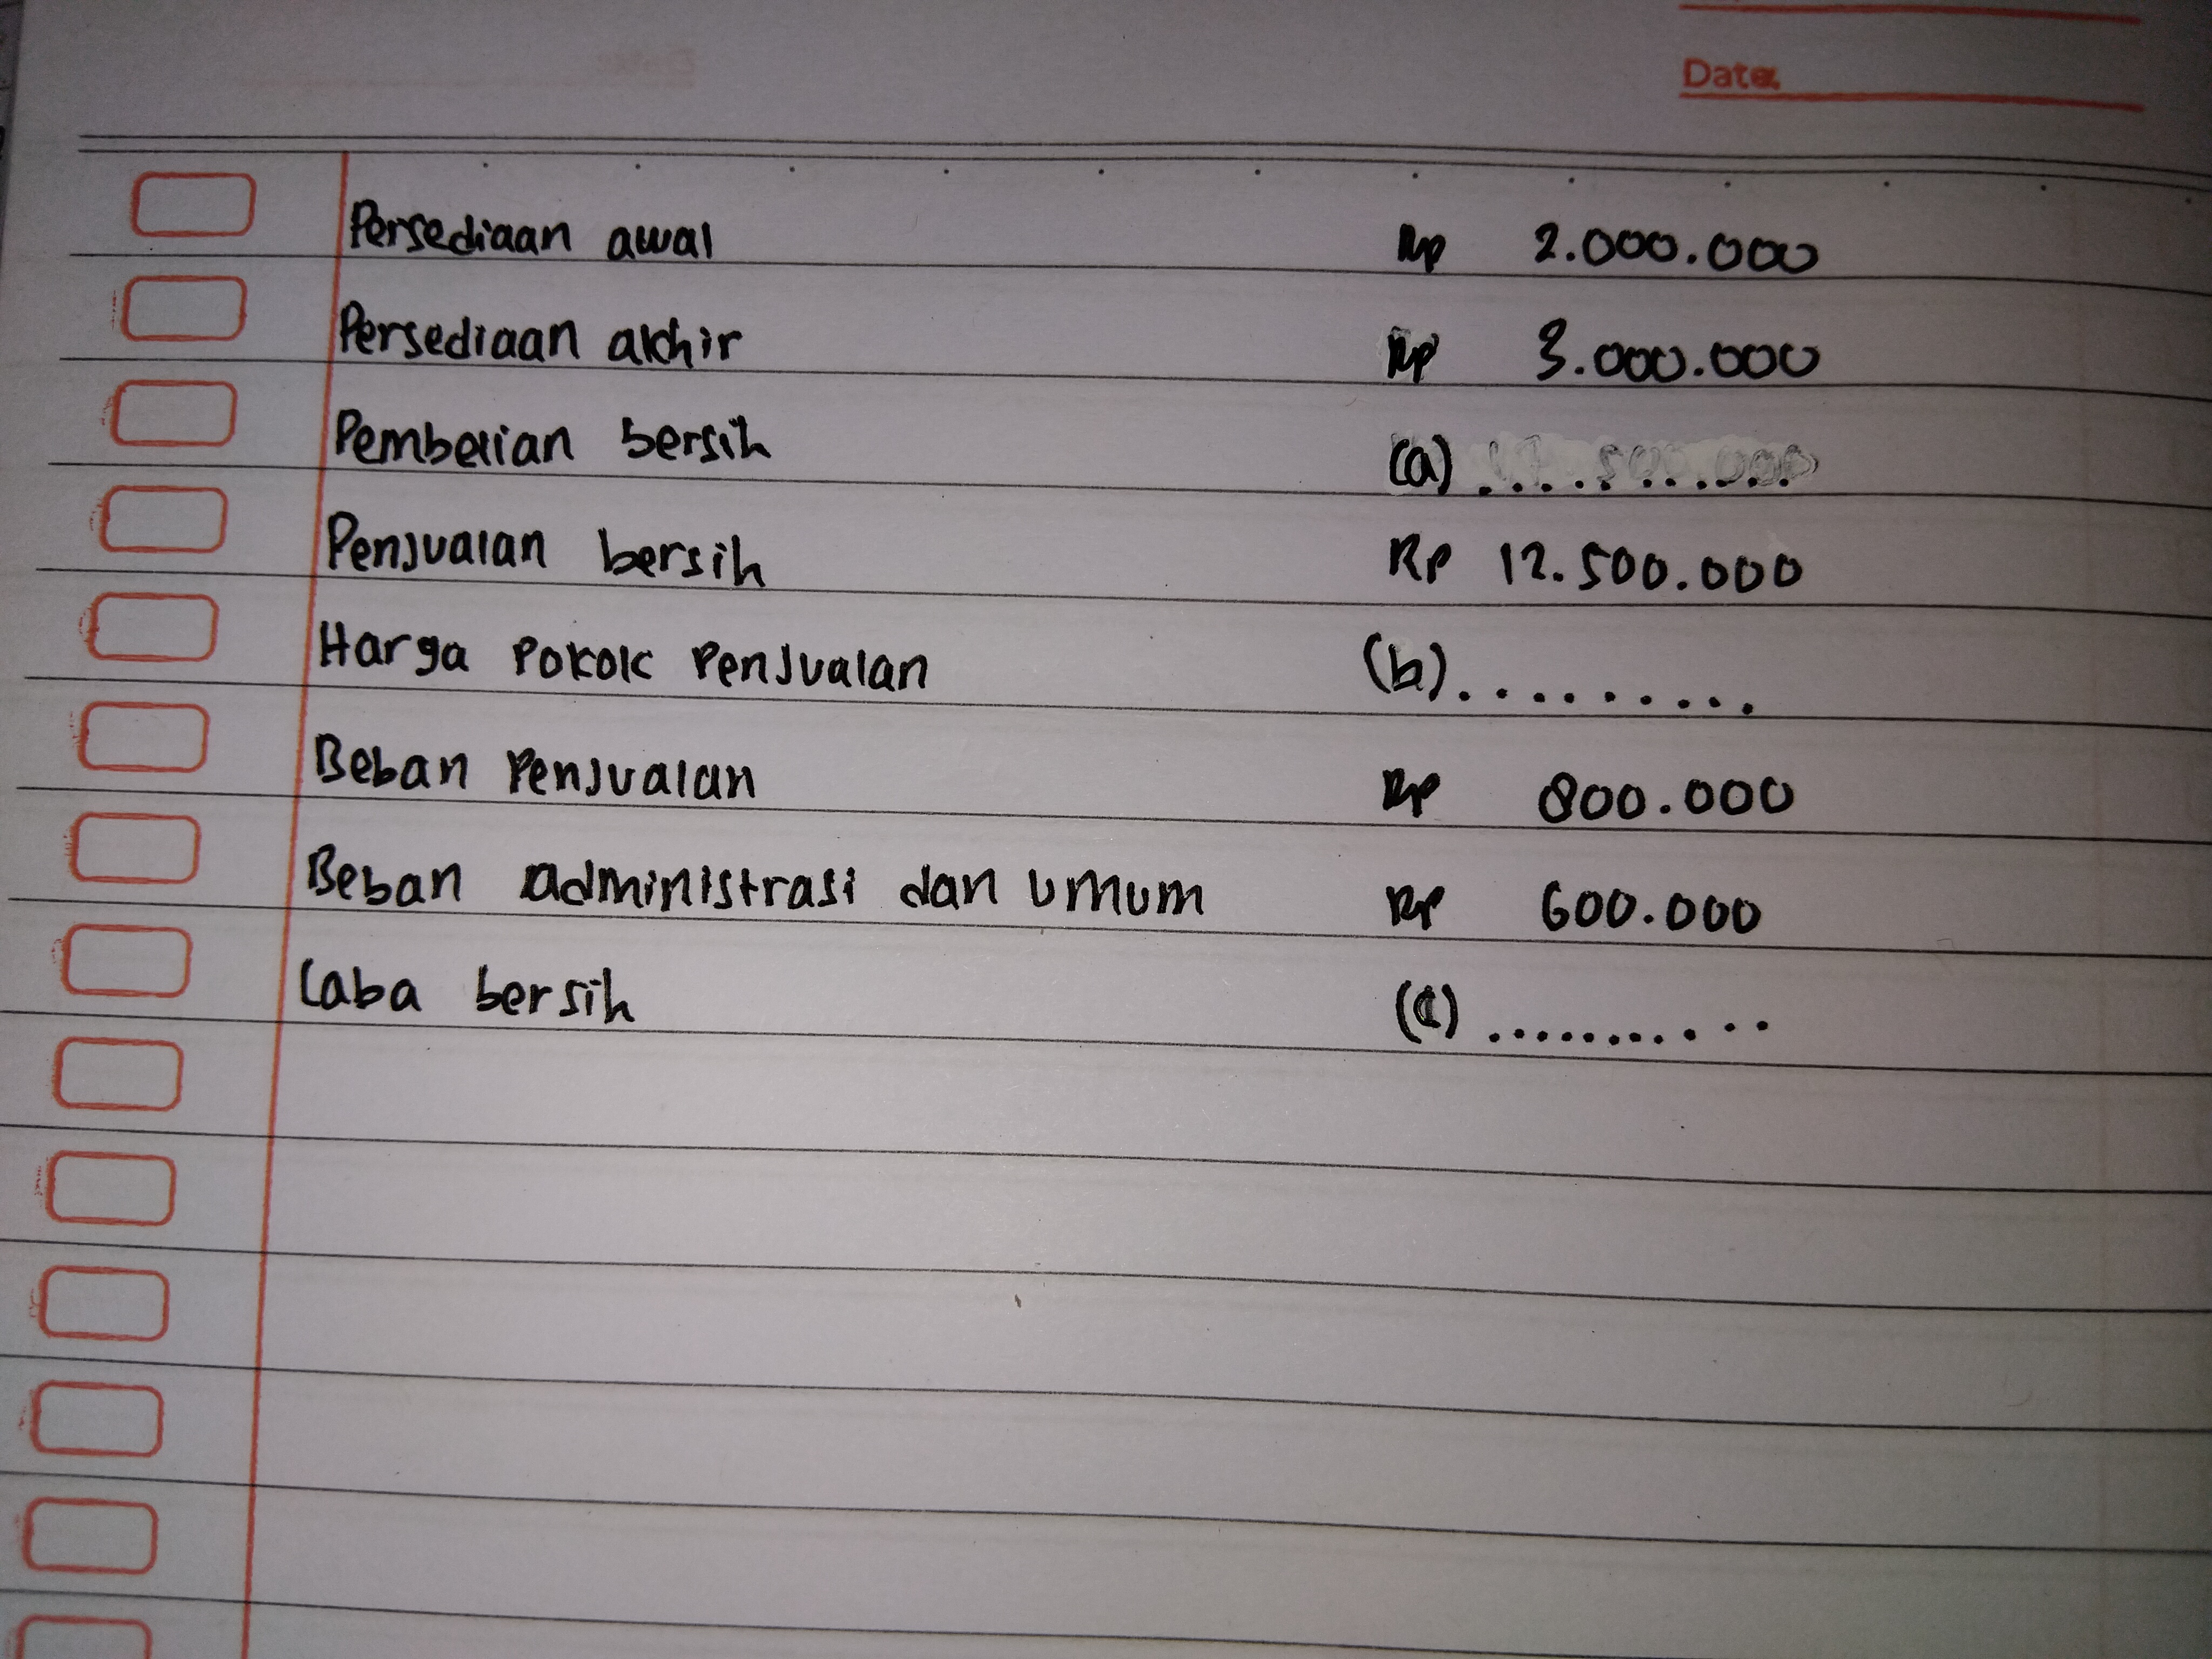 Date
Persediaan awal Rp 2.000.000
Persediaan akhir Rp 3.000.000
Pembelian bersih (a) ..........
Penjualan bersih Rp 12.500.000
Harga Pokok Penjualan (b) .........
Beban Penjualan Rp 800.000
Beban administrasi dan umum Rp 600.000
Laba bersih (c) ...........